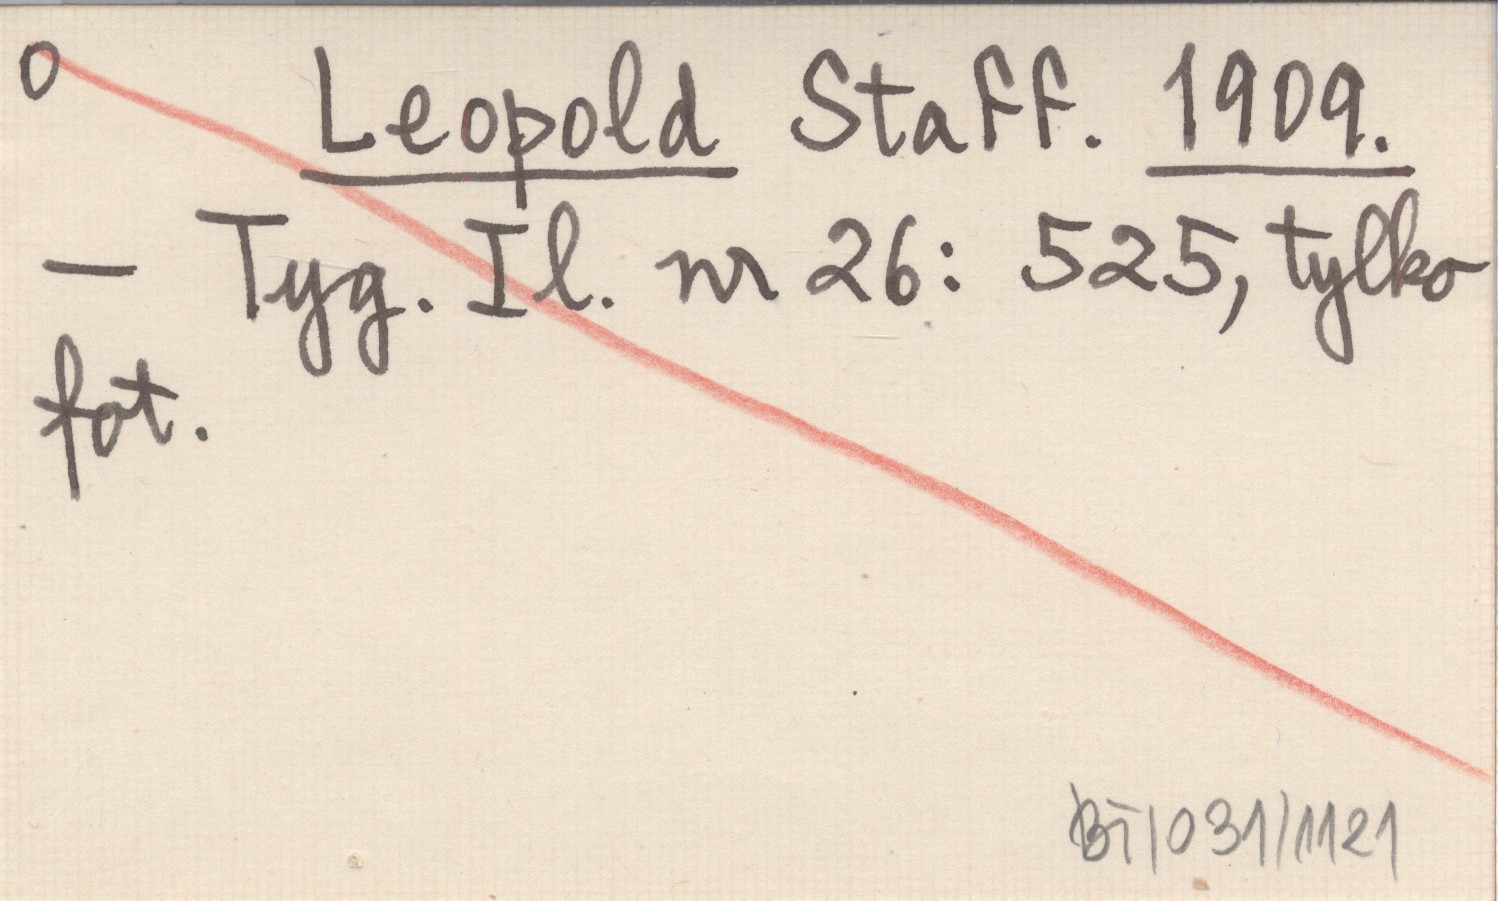 O Leopold Staff. 1909.
— Tyg. Il. nr 26: 525, tylko
fot.
BT/031/1121